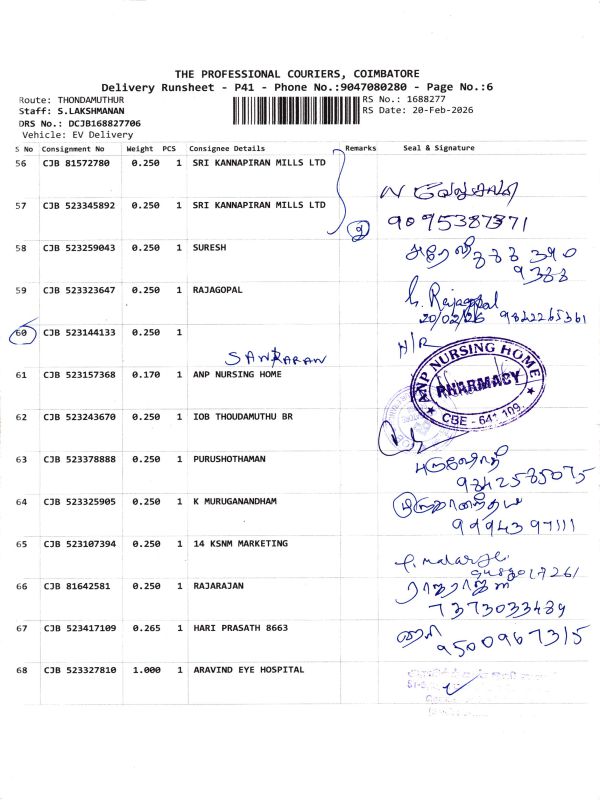 THE PROFESSIONAL COURIERS, COIMBATORE
Delivery Runsheet - P41 - Phone No.:9047080280 - Page No.:6
Route: THONDAMUTHUR
RS No.: 1688277
Staff: S.LAKSHMANAN
RS Date: 20-Feb-2026
DRS No.: DCJB168827706
Vehicle: EV Delivery
S No Consignment No Weight PCS Consignee Details Remarks Seal & Signature
56 CJB 81572780 0.250 1 SRI KANNAPIRAN MILLS LTD
57 CJB 523345892 0.250 1 SRI KANNAPIRAN MILLS LTD
9095387371
58 CJB 523259043 0.250 1 SURESH
59 CJB 523323647 0.250 1 RAJAGOPAL
Rajagopal
20/02/26 9842265361
60 CJB 523144133 0.250 1
SANKARAN
N/R
61 CJB 523157368 0.170 1 ANP NURSING HOME
ANP NURSING HOME
PHARMACY
CBE - 641 109
62 CJB 523243670 0.250 1 IOB THOUDAMUTHU BR
63 CJB 523378888 0.250 1 PURUSHOTHAMAN
9842585075
64 CJB 523325905 0.250 1 K MURUGANANDHAM
9994397111
65 CJB 523107394 0.250 1 14 KSNM MARKETING
66 CJB 81642581 0.250 1 RAJARAJAN
7373033489
67 CJB 523417109 0.265 1 HARI PRASATH 8663
ஹரி
9500967315
68 CJB 523327810 1.000 1 ARAVIND EYE HOSPITAL